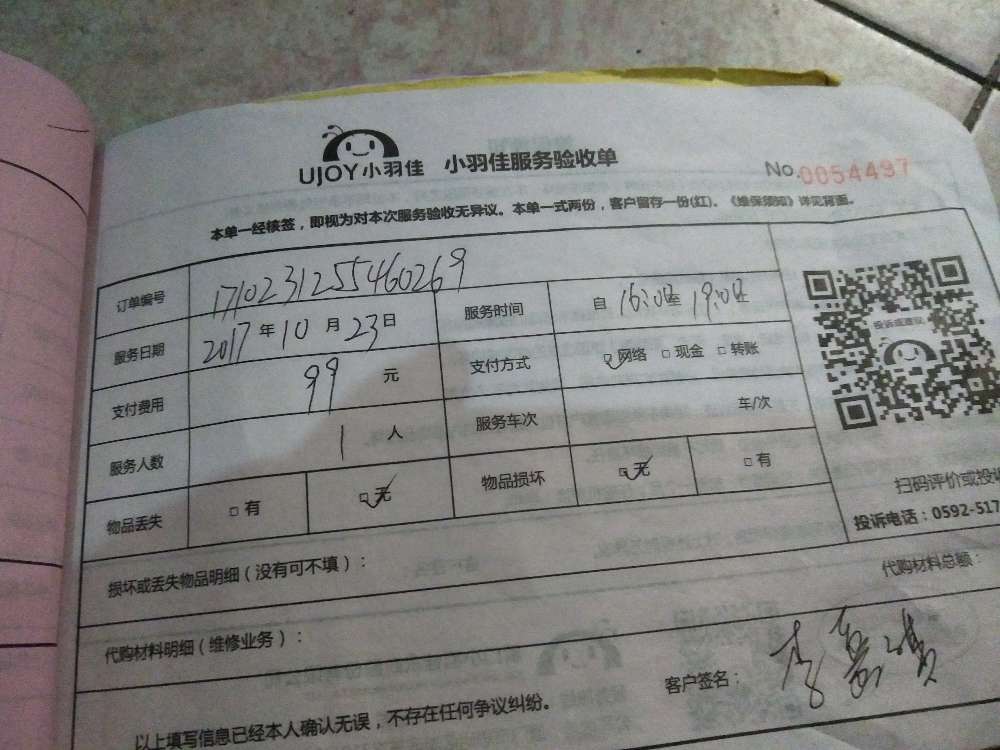 UJOY小羽佳 小羽佳服务验收单 No.0054497
本单一经核签，即视为对本次服务验收无异议。本单一式两份，客户留存一份(红)。《维保须知》详见背面。
订单编号 1710231255460269
服务日期 2017年10月23日 服务时间 自16:0至19:0止
支付费用 99元 支付方式 □网络 □现金 □转账
服务人数 1人 服务车次 车/次
物品丢失 □有 □无 物品损坏 □无 □有
投诉或建议
扫码评价或投
投诉电话：0592-517
损坏或丢失物品明细（没有可不填）：
代购材料明细（维修业务）： 代购材料总额：
以上填写信息已经本人确认无误，不存在任何争议纠纷。 客户签名：